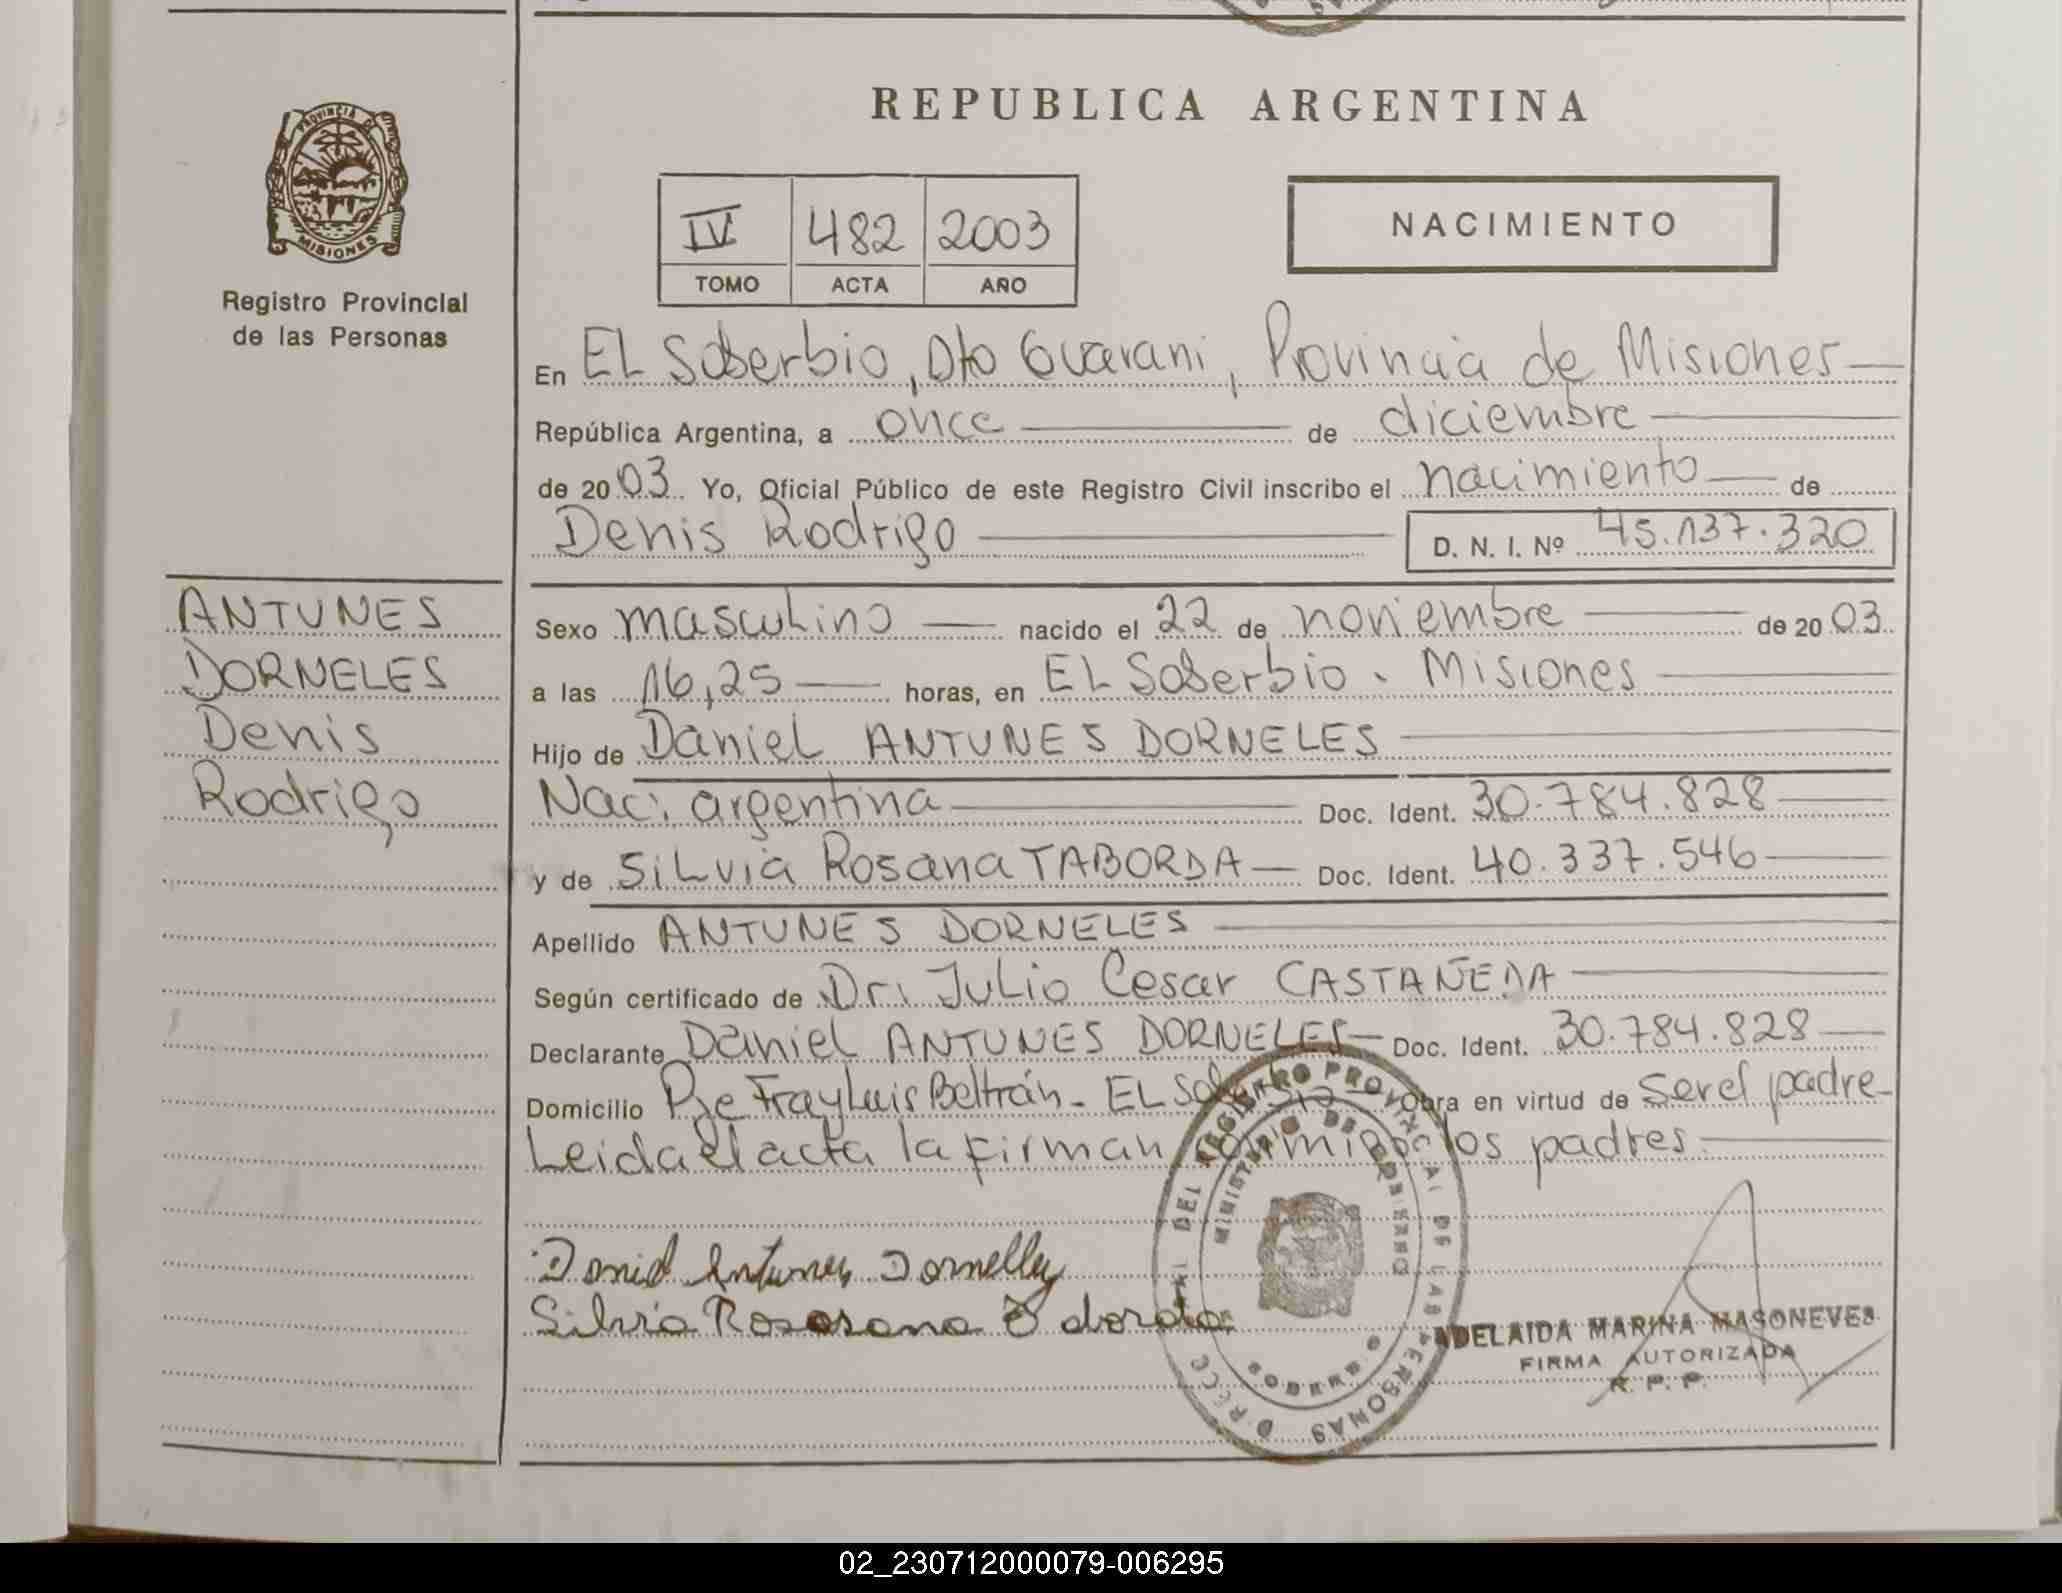 REPUBLICA ARGENTINA
PROVINCIA DE MISIONES
Registro Provincial
de las Personas
IV 482 2003
TOMO ACTA AÑO
NACIMIENTO
En EL Soberbio, Dto Guarani, Provincia de Misiones
República Argentina, a once de diciembre
de 2003 Yo, Oficial Público de este Registro Civil inscribo el nacimiento de
Denis Rodrigo D. N. I. Nº 45.137.320
ANTUNES
DORNELES
Denis
Rodrigo
Sexo mascuLino nacido el 22 de noviembre de 2003
a las 16,25 horas, en EL Soberbio - Misiones
Hijo de Daniel ANTUNES DORNELES
Nac: argentina Doc. Ident. 30.784.828
y de SiLvia Rosana TABORDA Doc. Ident. 40.337.546
Apellido ANTUNES DORNELES
Según certificado de Dr. JuLio Cesar CASTAÑEDA
Declarante Daniel ANTUNES DORNELES Doc. Ident. 30.784.828
Domicilio Pje Fray Luis Beltrán - EL Soberbio Obra en virtud de ser el padre
Leida el acta la firman conmigo los padres
Antunes
Silvia
REGISTRO PROVINCIAL DE LAS PERSONAS
MINISTERIO DE GOBIERNO
SOBERBIO
ADELAIDA MARINA MASONEVES
FIRMA AUTORIZADA
R. P. P.
02_230712000079-006295